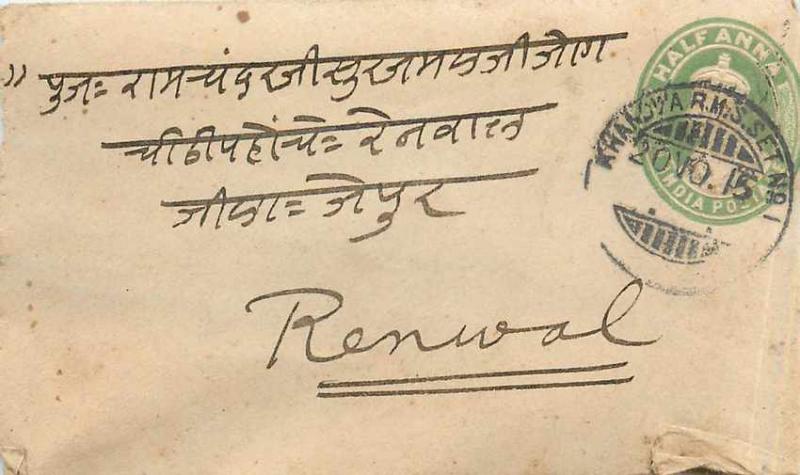 " पुज= रामचंदरजी सुरजमलजी जोग
चीठी पहोंचे= रेनवाल
जीला= जेपुर
Renwal
HALF ANNA
INDIA POSTAGE
KHANDWA R.M.S. SET NO 1
20 NO. 15